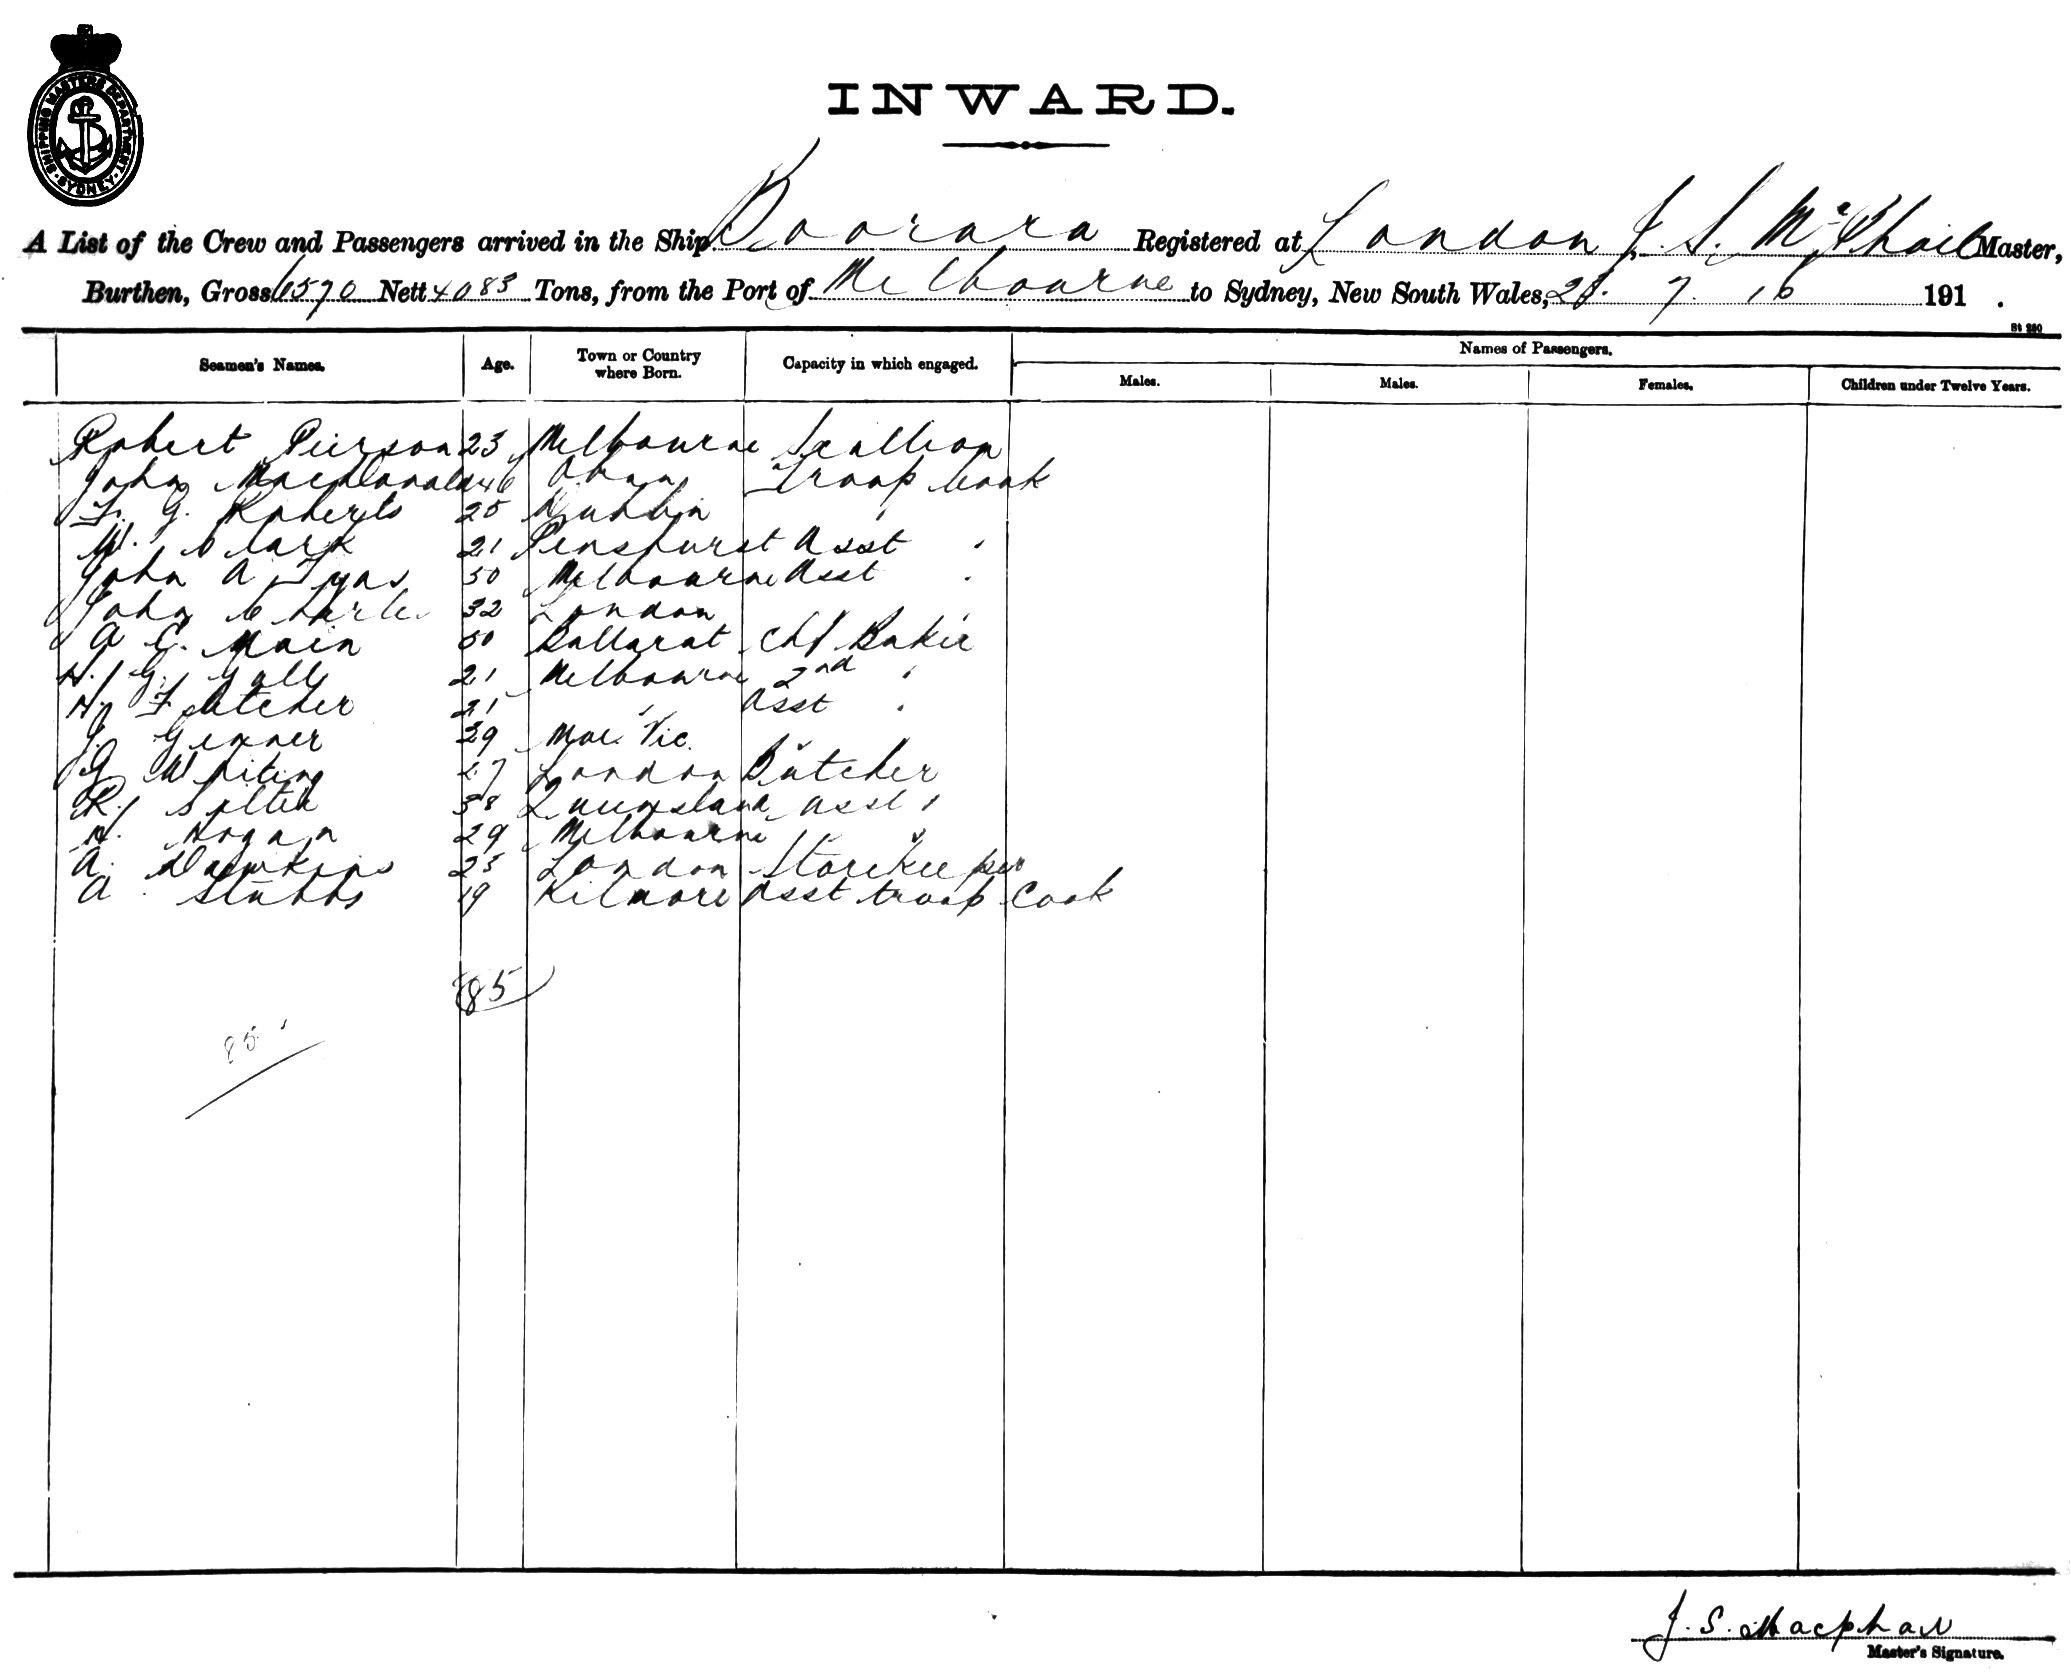 SHIPPING MASTERS DEPARTMENT. SYDNEY.
INWARD.
A List of the Crew and Passengers arrived in the Ship Boorara Registered at London J. S. McPhail Master,
Burthen, Gross 6570 Nett 4083 Tons, from the Port of Melbourne to Sydney, New South Wales, 28. 7. 16 191 .
St 280
Seamen's Names. Age. Town or Country where Born. Capacity in which engaged. Names of Passengers.
Males. Males. Females. Children under Twelve Years.
Robert Pierson 23 Melbourne Scullion
John MacDonald 46 Oban Troop Cook
F. G. Roberts 25 Dublin "
W. Clark 21 Penshurst Asst "
John A Tyas 50 Melbourne Asst "
John Charles 32 London "
A E. Main 50 Ballarat Chf Baker
H. G. Gall 21 Melbourne 2nd "
H. Fletcher 21 " Asst "
J. Genner 29 Moe. Vic. "
G Whiting 27 London Butcher
R. 38 Queensland asst "
H. Hogan 29 Melbourne " "
A. Dawkins 23 London Storekeeper
A. Stubbs 19 Kilmore Asst troop Cook
85
85
J. S. Macphail
Master's Signature.